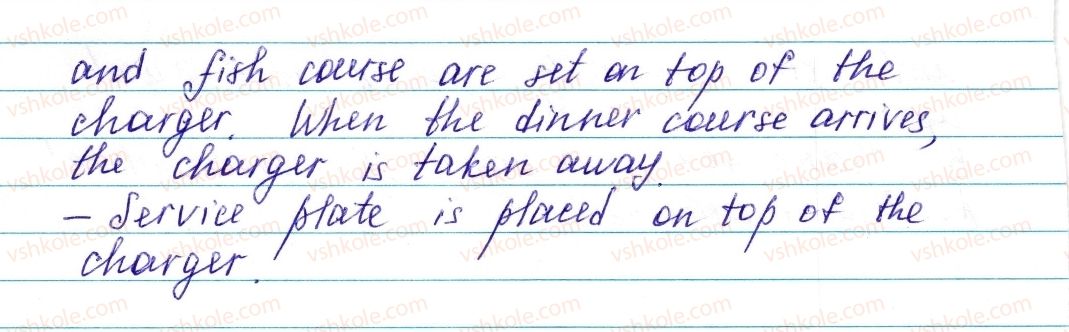 and fish course are set on top of the
charger. When the dinner course arrives,
the charger is taken away.
– Service plate is placed on top of the
charger.